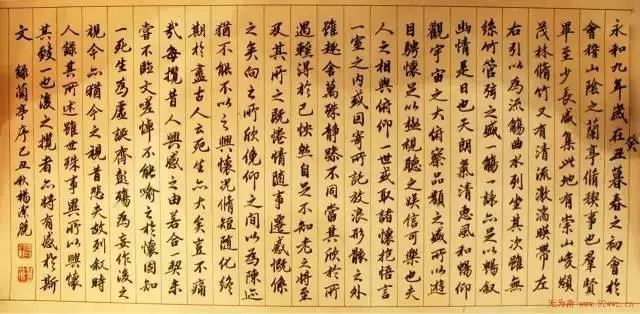 永和九年歲在丑暮春之初會於
癸
會稽山陰之蘭亭脩稧事也羣賢
畢至少長咸集此地有崇山峻領
茂林脩竹又有清流激湍暎帶左
右引以為流觴曲水列坐其次雖無
絲竹管弦之盛一觴一詠亦足以暢叙
幽情是日也天朗氣清惠風和暢仰
觀宇宙之大俯察品類之盛所以遊
目騁懷足以極視聽之娛信可樂也夫
人之相與俯仰一世或取諸懷抱悟言
一室之内或因寄所託放浪形骸之外
雖趣舍萬殊静躁不同當其欣於所
遇輒得於己怏然自足不知老之將至
及其所之既惓情随事遷感慨係
之矣向之所欣俛仰之間以為陳迹
猶不能不以之興懷況脩短随化終
期於盡古人云死生亦大矣豈不痛
哉每攬昔人興感之由若合一契未
嘗不臨文嗟悼不能喻之於懷固知
一死生為虛誕齊彭殤為妄作後之
視今亦猶今之視昔悲夫故列叙時
人録其所述雖世殊事異所以興懷
其致一也後之攬者亦將有感於斯
文 録蘭亭序己丑秋楊